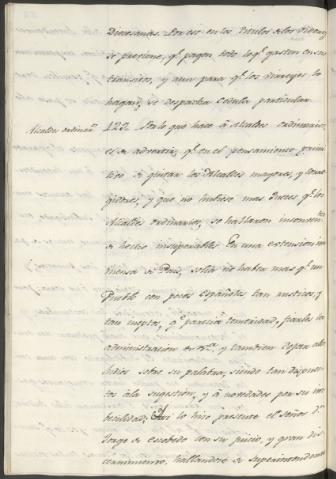 Diocesanas. Por eso en los titulos de los
se previene, qe. paguen todo lo qe. gasten en sus
transitos, y aun para qe. los
hagan, se despacha cedula particular
Alcaldes ordinars.
122. Por lo que hace à Alcaldes ordinarios
es de advertir, qe. en el pensamiento primi
tivo de quitar los Alcaldes mayores, y Corre
gidores, y que no hubiese mas Jueces qe. los
Alcaldes ordinarios, se hallaron inconvenien
de hecho insuperables. En una extension in
mensa de Pais, solia no haber mas qe. un
Pueblo con pocos Españoles tan rusticos, y
tan ineptos, qe. parecia temeridad, fiarles la
administracion de Jusa. y tambien dejar a los
Indios sobre su palabra, siendo tan dispues
tos à la sugestion, y à novedades por su im
becilidad. Asi lo hizo presente el Señor Dn.
Jorge de Escobedo con su juicio, y gran dis
cernimiento, hallandose de Superintendente